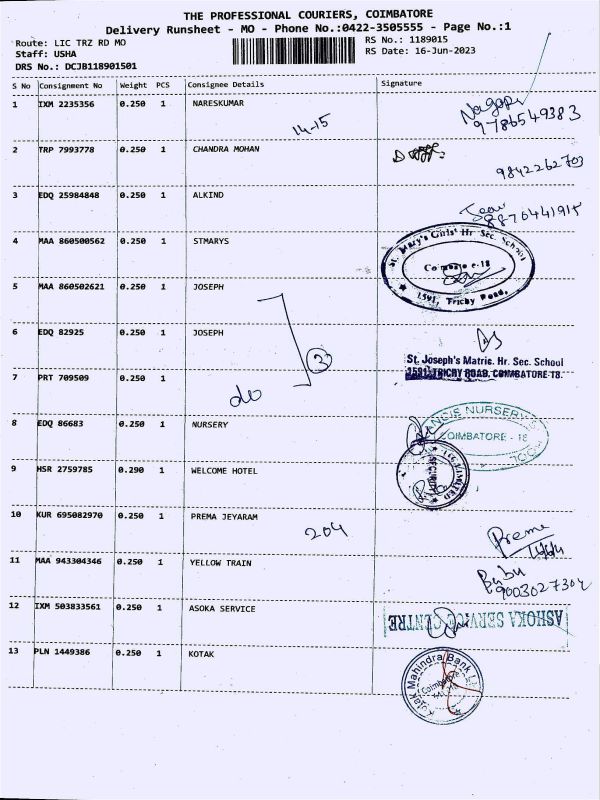 THE PROFESSIONAL COURIERS, COIMBATORE
Delivery Runsheet - MO - Phone No.:0422-3505555 - Page No.:1
Route: LIC TRZ RD MO
Staff: USHA
DRS No.: DCJB118901501
RS No.: 1189015
RS Date: 16-Jun-2023
S No Consignment No Weight PCS Consignee Details Signature
1 IXM 2235356 0.250 1 NARESKUMAR
14-15
9786549383
2 TRP 7993778 0.250 1 CHANDRA MOHAN
9842262703
3 EDQ 25984848 0.250 1 ALKIND
8870441915
4 MAA 860500562 0.250 1 STMARYS
St. Mary's Girls' Hr Sec. School
1591, Trichy Road,
5 MAA 860502621 0.250 1 JOSEPH
6 EDQ 82925 0.250 1 JOSEPH
3
St. Joseph's Matric. Hr. Sec. School
1591 TRICHY ROAD, COIMBATORE-18.
7 PRT 709509 0.250 1
do
8 EDQ 86683 0.250 1 NURSERY
COIMBATORE - 18
9 HSR 2759785 0.290 1 WELCOME HOTEL
SECURITY
LIMITED
10 KUR 695082970 0.250 1 PREMA JEYARAM
204
Preme
11 MAA 943304346 0.250 1 YELLOW TRAIN
Babu
9003027304
12 IXM 503833561 0.250 1 ASOKA SERVICE
ASHOKA SERVICE CENTRE
13 PLN 1449386 0.250 1 KOTAK
Kotak Mahindra Bank
Coimbatore